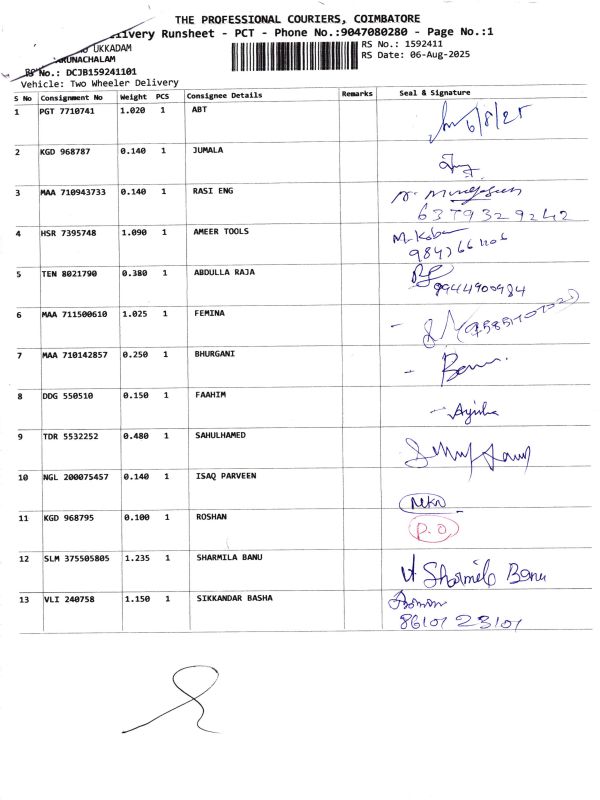 THE PROFESSIONAL COURIERS, COIMBATORE
livery Runsheet - PCT - Phone No.:9047080280 - Page No.:1
UKKADAM
RUNACHALAM
RS No.: 1592411
RS Date: 06-Aug-2025
No.: DCJB159241101
Vehicle: Two Wheeler Delivery
S No Consignment No Weight PCS Consignee Details Remarks Seal & Signature
1 PGT 7710741 1.020 1 ABT 6/8/25
2 KGD 968787 0.140 1 JUMALA
3 MAA 710943733 0.140 1 RASI ENG
6379329242
4 HSR 7395748 1.090 1 AMEER TOOLS
5 TEN 8021790 0.380 1 ABDULLA RAJA
9944900984
6 MAA 711500610 1.025 1 FEMINA
7 MAA 710142857 0.250 1 BHURGANI
8 DDG 550510 0.150 1 FAAHIM - Ayisha
9 TDR 5532252 0.480 1 SAHULHAMED
10 NGL 200075457 0.140 1 ISAQ PARVEEN
11 KGD 968795 0.100 1 ROSHAN P.O.
12 SLM 375505805 1.235 1 SHARMILA BANU Sharmila Banu
13 VLI 240758 1.150 1 SIKKANDAR BASHA
8610723107